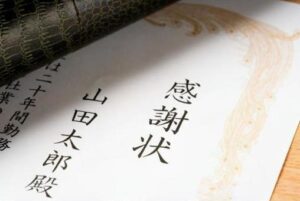 感謝状
山田太郎殿
社二十年間勤務
社業